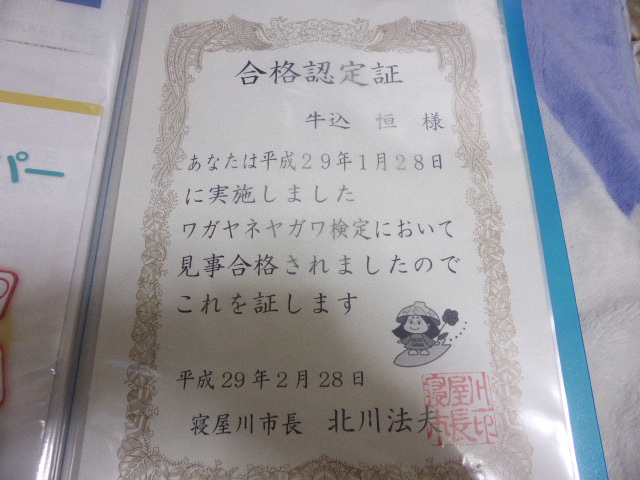 合格認定証
牛込 恒 様
あなたは平成29年1月28日
に実施しました
ワガヤネヤガワ検定において
見事合格されましたので
これを証します
平成29年2月28日
寝屋川市長 北川法夫
パー